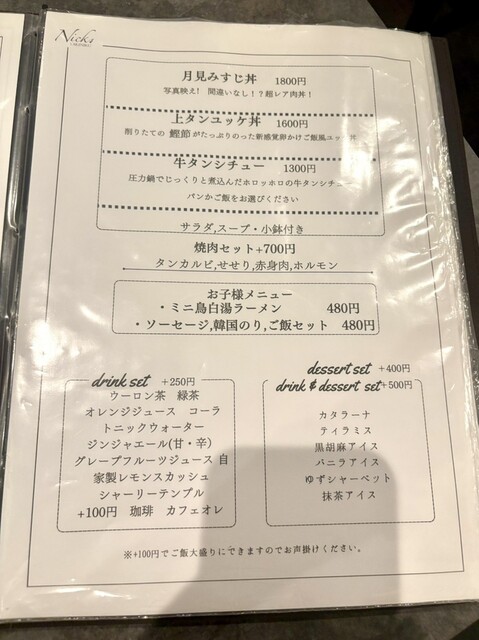 Nick's
月見みすじ丼 1800円
写真映え! 間違いなし!?超レア肉丼!
上タンユッケ丼 1600円
削りたての 鰹節 がたっぷりのった新感覚卵かけご飯風ユッケ丼
牛タンシチュー 1300円
圧力鍋でじっくりと煮込んだホロッホロの牛タンシチュー
パンかご飯をお選びください
サラダ,スープ・小鉢付き
焼肉セット+700円
タンカルビ,せせり,赤身肉,ホルモン
お子様メニュー
・ミニ鳥白湯ラーメン 480円
・ソーセージ,韓国のり,ご飯セット 480円
drink set +250円
ウーロン茶 緑茶
オレンジジュース コーラ
トニックウォーター
ジンジャエール(甘・辛)
グレープフルーツジュース 自
家製レモンスカッシュ
シャーリーテンプル
+100円 珈琲 カフェオレ
dessert set +400円
drink & dessert set +500円
カタラーナ
ティラミス
黒胡麻アイス
バニラアイス
ゆずシャーベット
抹茶アイス
※+100円でご飯大盛りにできますのでお声掛けください。